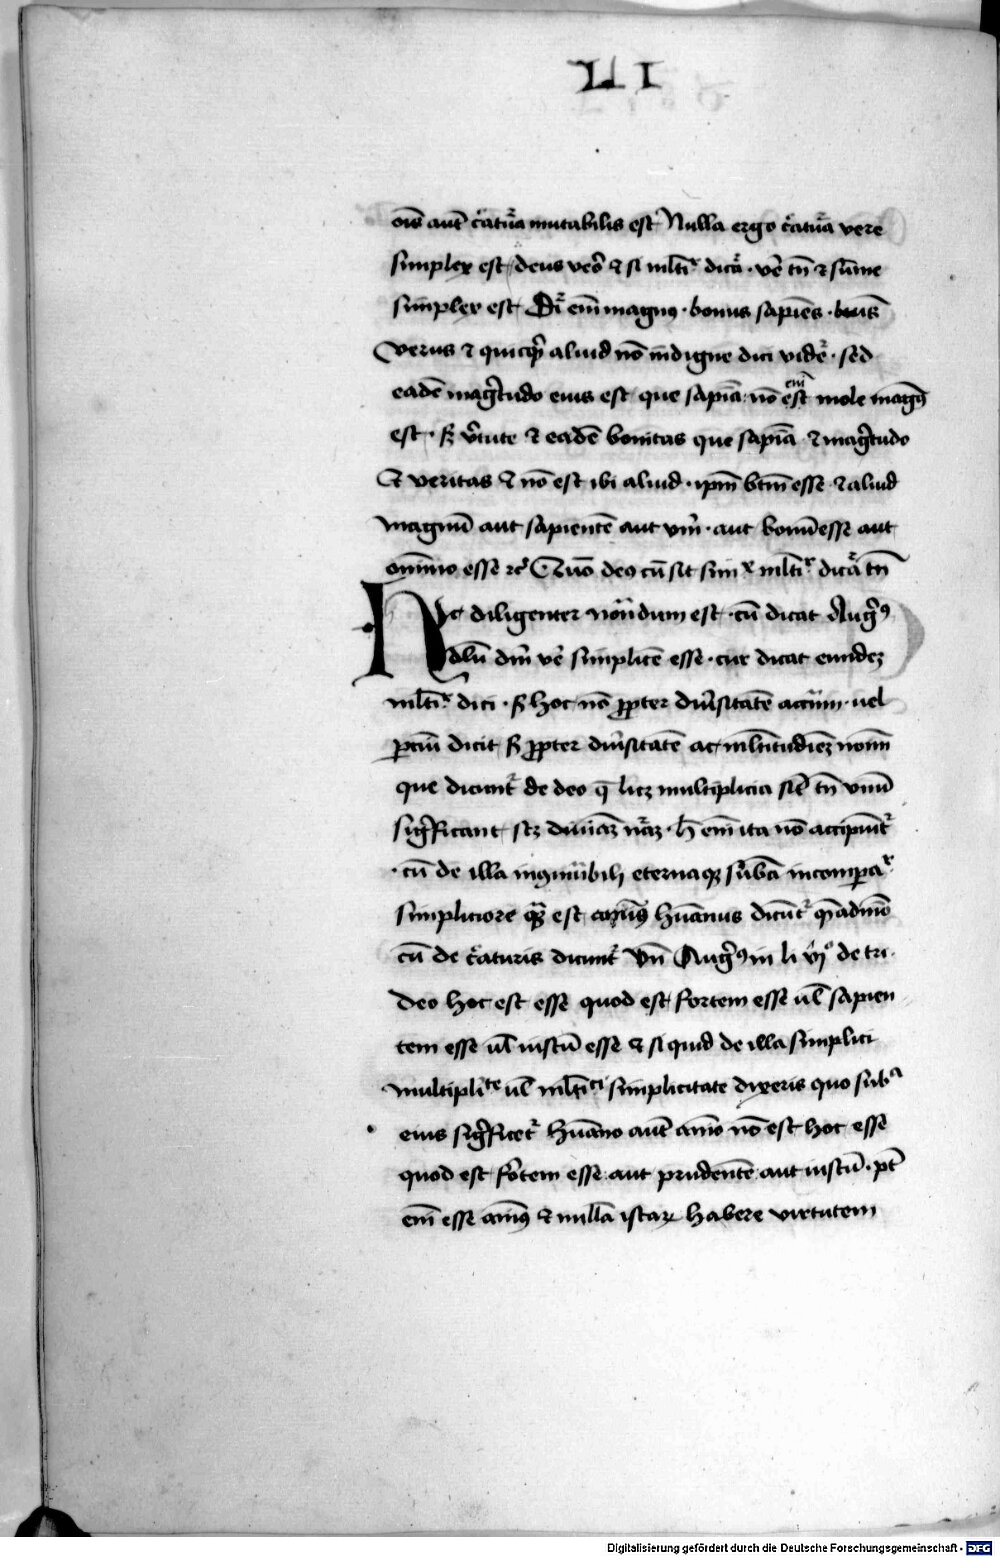 LI
oīs aut̄ c̄atūa mutabilis est Nulla ergo c̄atūa vere
simplex est deus v̄o ⁊ si ml̄ti dicā · vē tn̄ ⁊ sūme
simplex est Dr̄ em̄ magnꝰ · bonus sapiēs ·
verus ⁊ quicq̄ aliud nō indigne dici videt̄ · sed
eadē magt̄udo eius est que sapīa nō em̄ est mole magnꝰ
est · sꝫ v̄tute ⁊ eadē bonitas que sapīa ⁊ magt̄udo
Et veritas ⁊ nō est ibi aliud · ip̄m bt̄m esse ⁊ aliud
magnū aut sapientē aut vm̄ · aut bonū esse aut
om̄īno esse ⁊c̄ Quō deꝯ cū sit simˣ ml̄tiʳ dicāt̄ tn̄
Hic diligenter nōndum est · cū dicat Augꝰ
solū dm̄ vē simplicē esse · cur dicat eundeꝫ
ml̄tiʳ dici · sꝫ hoc nō ꝓpter diūsitatē accn̄m · uel
ꝑciū dicit sꝫ ꝓpter diūsitatē ac ml̄titudieꝫ nom̄
que dicunt̄ de deo q̄ licꝫ multiplicia sīt tn̄ vnū
sigīficant scꝫ diuinā nāꝫ · h̄ em̄ ita nō accipiūt̄
· cū de illa eternaqꝫ sūbā incomꝑaʳ
simpliciore qꝫ est hūanus dicūt̄ q̄admō
cū de c̄aturis dicunt̄ Vn̄ Augꝰ in li vjº de tri ·
deo hoc est esse quod est fortem esse ul̄ sapien
tem esse ul̄ iustū esse ⁊ si quid de illa simplici
multiplīte ul̄ ml̄tici simplicitate dixeris quo subᵃ
eius sigīficet̄ hūano aut̄ aīo nō est hoc esse
quod est fōtem esse aut prudentē aut iustū · pt̄
em̄ esse aīꝰ ⁊ nullā istaꝝ habere virtutem
Digitalisierung gefördert durch die Deutsche Forschungsgemeinschaft · DFG